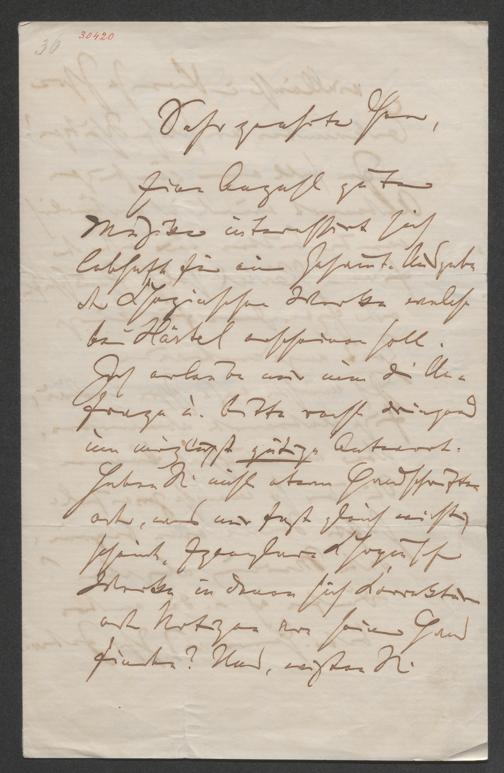 36
30420
Sehr geehrter Herr,
Eine Anzahl guter
Musiker interessirt sich
lebhaft für eine Gesamt-Ausgabe
der Chopinschen Werke welche
bei Härtel erscheinen soll.
Ich erlaube mir nun die An-
frage u. bitte recht dringend
um möglichst gütige Antwort.
Haben Sie nicht etwa Handschriften
oder, was mir fast gleich wichtig
scheint, Exemplare Chopinscher
Werke in denen sich Correkturen
oder Notizen von seiner Hand
finden? Und, wüßten Sie